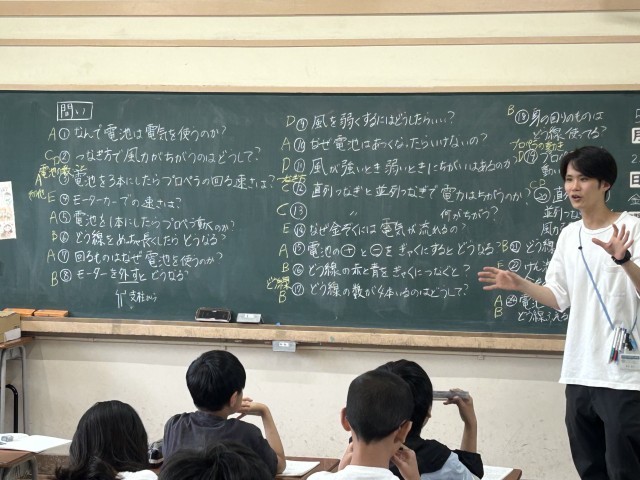 問い
A ① なんで電池は電気を使うのか?
C ② つなぎ方で風力がちがうのはどうして?
電池の数
A ③ 電池を3本にしたらプロペラの回る速さは?
その他
E ④ モーターカーでの速さは?
A ⑤ 電池を1本にしたらプロペラ動くのか?
B ⑥ どう線をめっちゃ長くしたらどうなる?
A ⑦ 回るものはなぜ電池を使うのか?
B ⑧ モーターを外すとどうなる?
支柱から
D ⑨ 風を弱くするにはどうしたらいい?
A ⑩ なぜ電池はあつくなったらいけないの?
D ⑪ 風が強いとき弱いときにちがいはあるのか?
つなぎ方
C ⑫ 直列つなぎと並列つなぎで電力はちがうか?
C ⑬ 〃 何がちがう?
E ⑭ なぜ金ぞくには電気が流れるの?
A ⑮ 電池の+と−をぎゃくにするとどうなる?
B ⑯ どう線の赤と青をぎゃくにつなぐと?
どう線
B ⑰ どう線の数が4本いるのはどうして?
B ⑱ 身の回りのものは
どう線使ってる?
プロペラの動き
D ⑲ プロ
動い
CD
⑳ 直列
並列つ
風力
B ㉑ どう線
A
B
電池
どう線